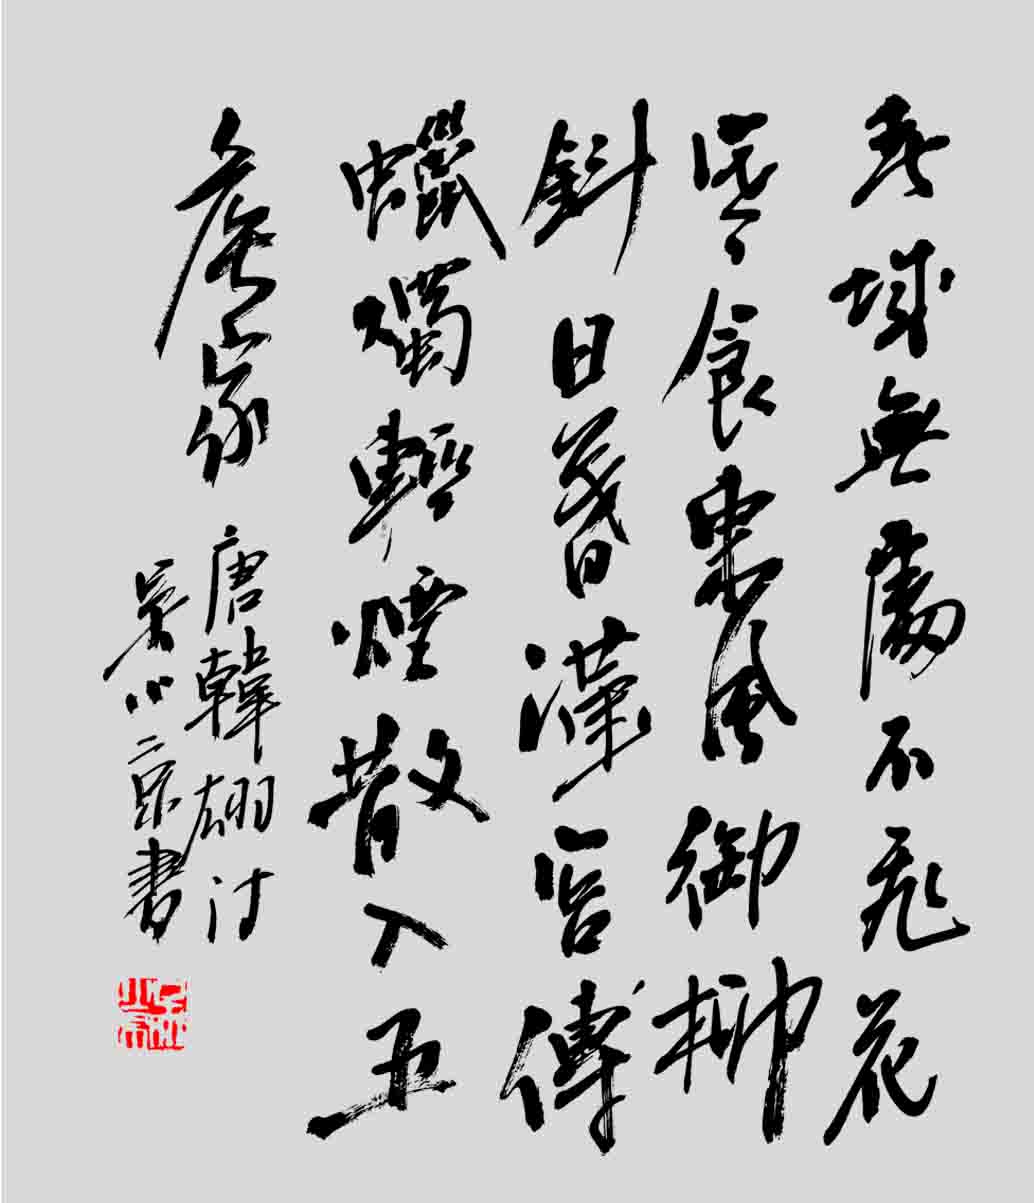 春城無處不飛花
寒食東風御柳
斜日暮漢宮傳
蠟燭輕煙散入五
侯家
唐韓翃詩
小京書